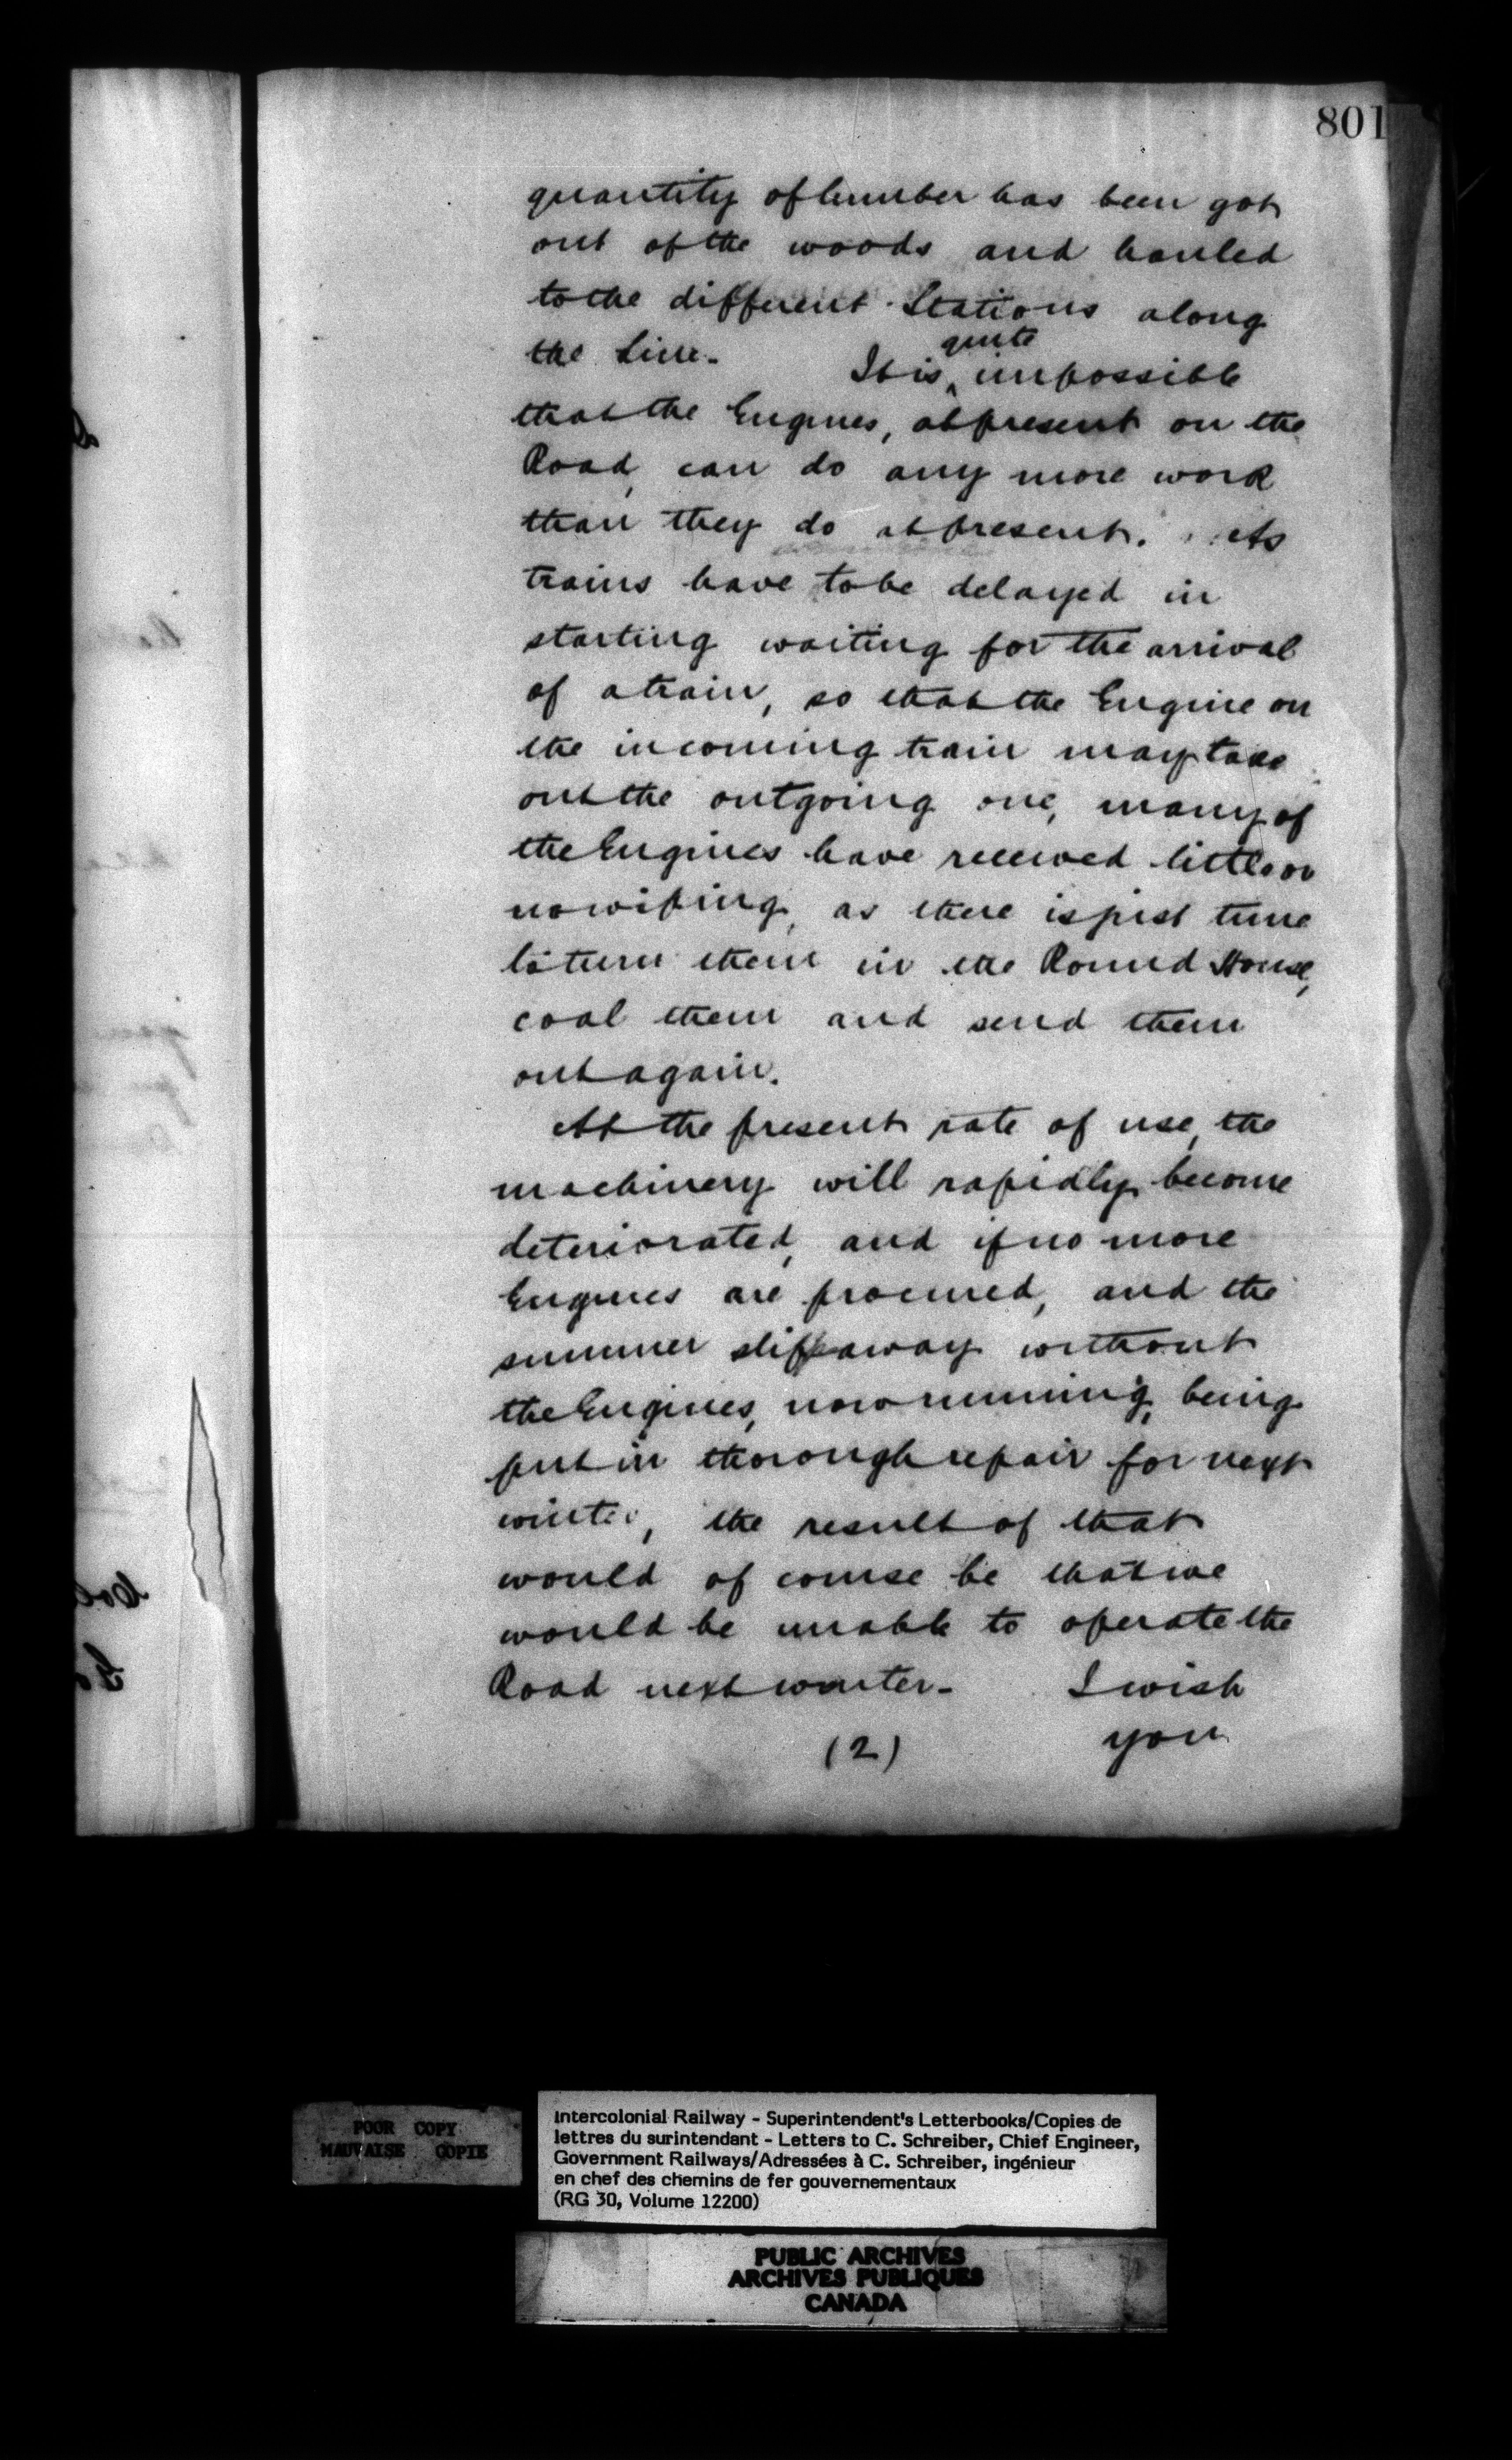 801
quantity of lumber has been got
out of the woods and hauled
to the different Stations along
the Line. It is quite impossible
that the Engines, at present on the
Road, can do any more work
than they do at present. As
trains have to be delayed in
starting waiting for the arrival
of a train, so that the Engine on
the incoming train may take
out the outgoing one, many of
the Engines have received little or
no wiping, as there is just time
to turn them in the Round House,
coal them and send them
out again.
At the present rate of use, the
machinery will rapidly become
deteriorated, and if no more
Engines are procured, and the
summer slip away without
the Engines, now running, being
put in thorough repair for next
winter, the result of that
would of course be that we
would be unable to operate the
Road next winter. I wish
(2) you
POOR COPY
MAUVAISE COPIE
Intercolonial Railway - Superintendent's Letterbooks/Copies de
lettres du surintendant - Letters to C. Schreiber, Chief Engineer,
Government Railways/Adressées à C. Schreiber, ingénieur
en chef des chemins de fer gouvernementaux
(RG 30, Volume 12200)
PUBLIC ARCHIVES
ARCHIVES PUBLIQUES
CANADA